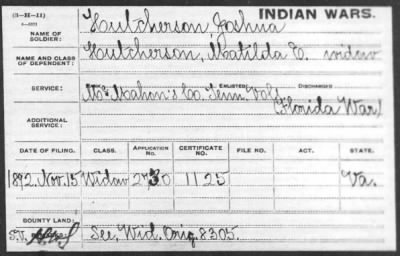 (3-H-11)
INDIAN WARS.
Hutcherson, Joshua
NAME OF SOLDIER:
Hutcherson, Matilda E. widow
NAME AND CLASS OF DEPENDENT:
SERVICE:
ENLISTED
DISCHARGED
McMahon's Co. Tenn. Vols
(Florida War)
ADDITIONAL SERVICE:
DATE OF FILING. CLASS. APPLICATION No. CERTIFICATE No. FILE NO. ACT. STATE.
1892, Nov. 15 Widow 2730 1125 Va.
BOUNTY LAND:
See, Wid. Orig. 8305.